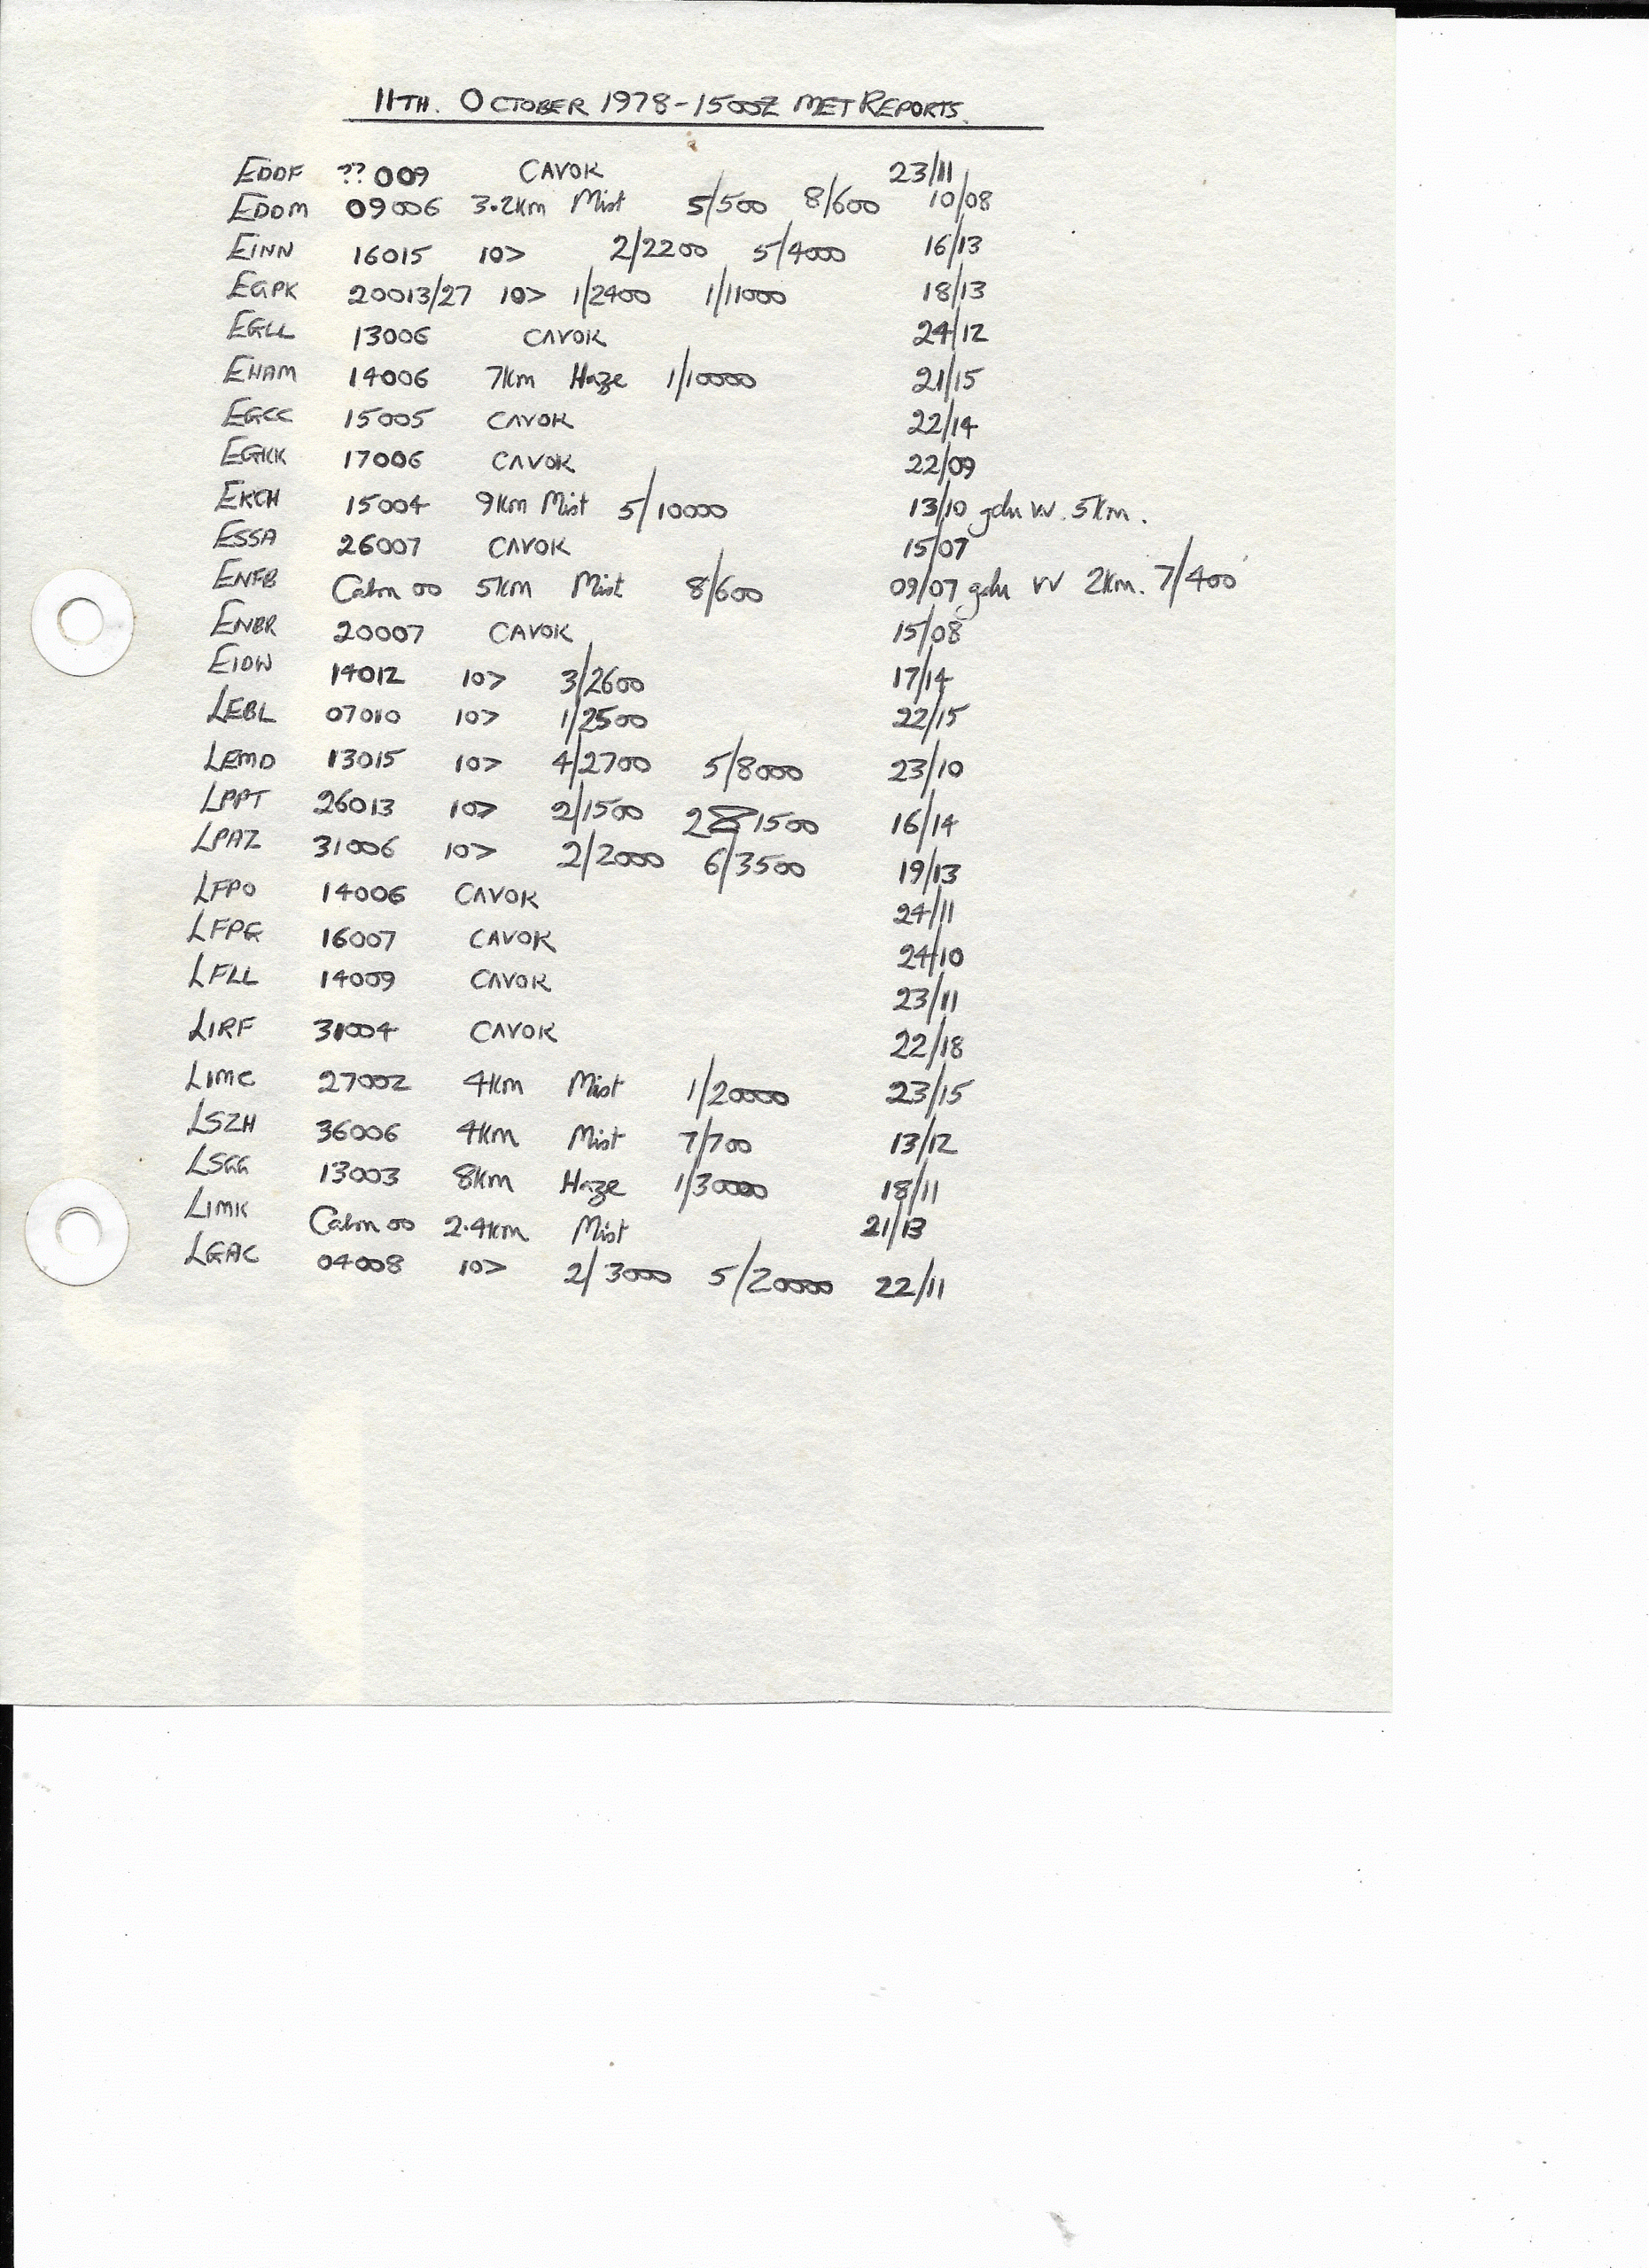 11TH. OCTOBER 1978-1500Z MET REPORTS.
EDDF ??009 CAVOK 23/11
EDDM 09006 3.2km Mist 5/500 8/600 10/08
EINN 16015 10> 2/2200 5/4000 16/13
EGPK 20013/27 10> 1/2400 1/11000 18/13
EGLL 13006 CAVOK 24/12
EHAM 14006 7km Haze 1/10000 21/15
EGCC 15005 CAVOK 22/14
EGKK 17006 CAVOK 22/09
EKCH 15004 9km Mist 5/10000 13/10 gdu VV. 5km.
ESSA 26007 CAVOK 15/07
ENFB Calm 00 5km Mist 8/600 09/07 gdu VV 2km. 7/400
ENBR 20007 CAVOK 15/08
EIDW 14012 10> 3/2600 17/14
LEBL 07010 10> 1/2500 22/15
LEMD 13015 10> 4/2700 5/8000 23/10
LPPT 26013 10> 2/1500 1500 16/14
LPAZ 31006 10> 2/2000 6/3500 19/13
LFPO 14006 CAVOK 24/11
LFPG 16007 CAVOK 24/10
LFLL 14009 CAVOK 23/11
LIRF 31004 CAVOK 22/18
LIMC 27002 4km Mist 1/20000 23/15
LSZH 36006 4km Mist 7/700 13/12
LSGG 13003 8km Haze 1/30000 18/11
LIMK Calm 00 2.4km Mist 21/13
LGAC 04008 10> 2/3000 5/20000 22/11